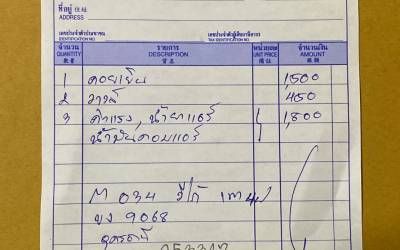 ที่อยู่
ADDRESS
เลขประจำตัวประชาชน เลขประจำตัวผู้เสียภาษีอากร
IDENTIFICATION NO. TAX IDENTIFICATION NO.
จำนวน รายการ หน่วยละ จำนวนเงิน
QUANTITY DESCRIPTION UNIT PRICE AMOUNT
数量 貨名
1 คอยเย็น 1,500
2 วาวล์ 450
3 ค่าแรง, น้ำยาแอร์ 1,800
น้ำมันคอมแอร์
M 034 วีโก้
บง 9068
อุดรธานี